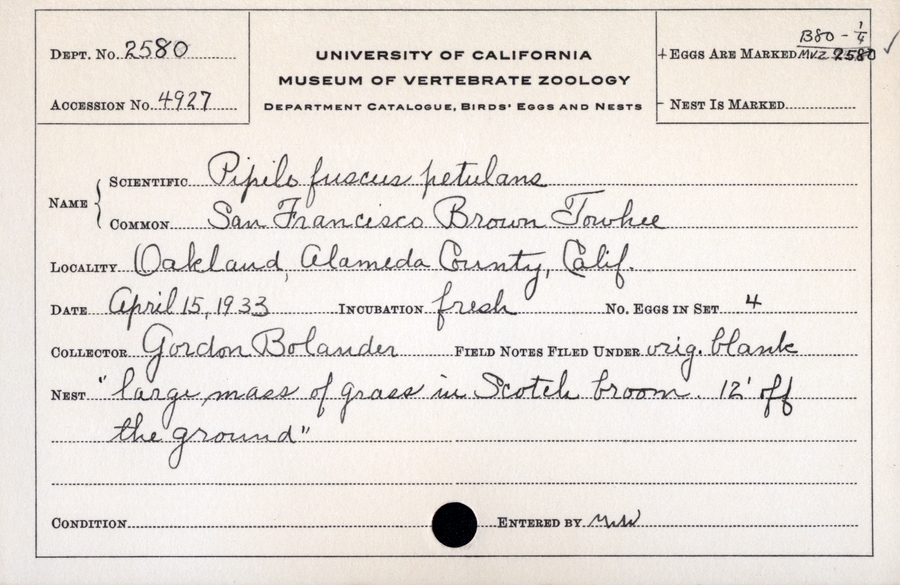 DEPT. No. 2580
ACCESSION No. 4927
UNIVERSITY OF CALIFORNIA
MUSEUM OF VERTEBRATE ZOOLOGY
DEPARTMENT CATALOGUE, BIRDS' EGGS AND NESTS
B80 - 1/4
+ EGGS ARE MARKED MVZ 2580 ✓
- NEST IS MARKED
NAME { SCIENTIFIC Pipilo fuscus petulans
COMMON San Francisco Brown Towhee
LOCALITY Oakland, Alameda County, Calif.
DATE April 15, 1933 INCUBATION fresh No. EGGS IN SET 4
COLLECTOR Gordon Bolander FIELD NOTES FILED UNDER orig. blank
NEST "large mass of grass in Scotch broom. 12' off
the ground"
CONDITION ENTERED BY